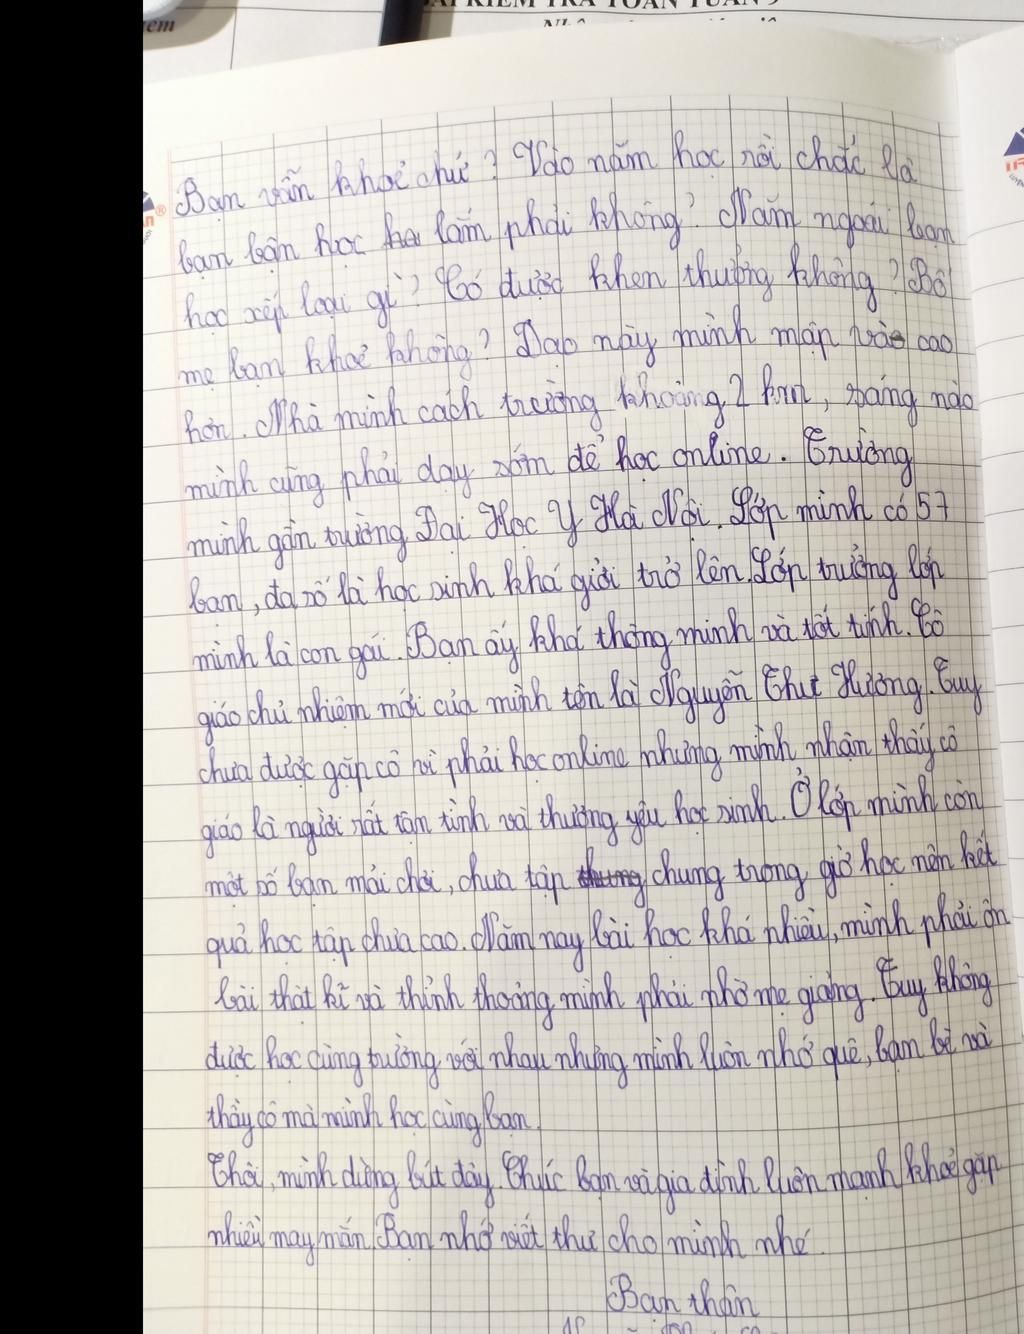 BÀI KIỂM TRA TOÁN TUẦN
Bạn vẫn khoẻ chứ? Vào năm học rồi chắc là
bạn bận học ha lắm phải không? Năm ngoái bạn
học xếp loại gì? Có được khen thưởng không? Bố
mẹ bạn khoẻ không? Dạo này mình mập và cao
hơn. Nhà mình cách trường khoảng 2 km, sáng nào
mình cũng phải dạy sớm để học online. Trường
mình gần trường Đại Học Y Hà Nội. Lớp mình có 57
bạn, đa số là học sinh khá giỏi trở lên. Lớp trưởng lớp
mình là con gái. Bạn ấy khá thông minh và tốt tính. Cô
giáo chủ nhiệm mới của mình tên là Nguyễn Thu Hương. Tuy
chưa được gặp cô vì phải học online nhưng mình nhận thấy cô
giáo là người rất tận tình và thương yêu học sinh. Ở lớp mình còn
một số bạn mải chơi, chưa tập thung chung trong giờ học nên kết
quả học tập chưa cao. Năm nay bài học khá nhiều, mình phải ôn
bài thật kĩ và thỉnh thoảng mình phải nhờ mẹ giảng. Tuy không
được học cùng trường với nhau nhưng mình luôn nhớ quê, bạn bè và
thầy cô mà mình học cùng bạn.
Thôi, mình dừng bút đây. Chúc bạn và gia đình luôn mạnh khoẻ gặp
nhiều may mắn. Bạn nhớ viết thư cho mình nhé.
Bạn thân